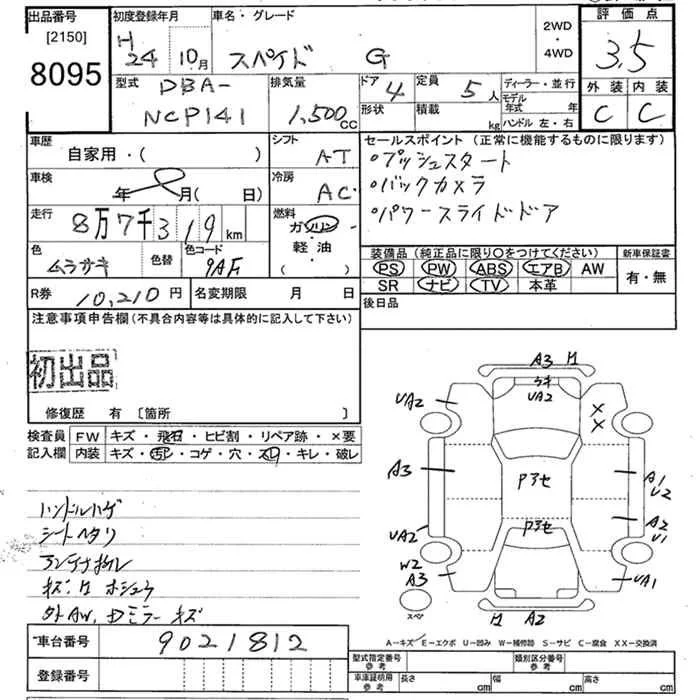 出品番号 初度登録年月 車名・グレード 2WD 評価点
[2150] H 24 10月 スペイド G ・ 3.5
8095 4WD 外装 内装
型式 DBA- 排気量 ドア 4 定員 5人 ディーラー・並行 C C
NCP141 1,500cc 形状 積載 kg モデル年式 年
ハンドル 左・右
車歴 シフト セールスポイント(正常に機能するものに限ります)
自家用・( ) AT ・プッシュスタート
車検 冷房 ・バックカメラ
年 月( 日) AC ・パワースライドドア
走行 燃料
8万7千319km ガソリン
軽油
( )
色 ムラサキ 色替 色コード 9AF
装備品(純正品に限り○をつけてください) 新車保証書
PS PW ABS エアB AW 有・無
SR ナビ TV 本革
R券 10,210円 名変期限 月 日 後日品
注意事項申告欄(不具合内容等は具体的に記入して下さい)
初出品
修復歴 有 [箇所 ]
検査員 FW キズ・飛石・ヒビ割・リペア跡・×要
記入欄 内装 キズ・汚レ・コゲ・穴・スレ・キレ・破レ
ハンドルハゲ
シートヘタリ
キズ
A3
UA2 UA2
A3 Pアセ A1
U2
UA2 Pアセ A2
U1
W2
A3 UA1
スペア A2
A-キズ E-エクボ U-凹み W-補修跡 S-サビ C-腐食 XX-交換済
車台番号 9021812
登録番号
型式指定番号 参考 類別区分番号 参考
車庫証明用 参考 長さ cm 幅 cm 高さ cm